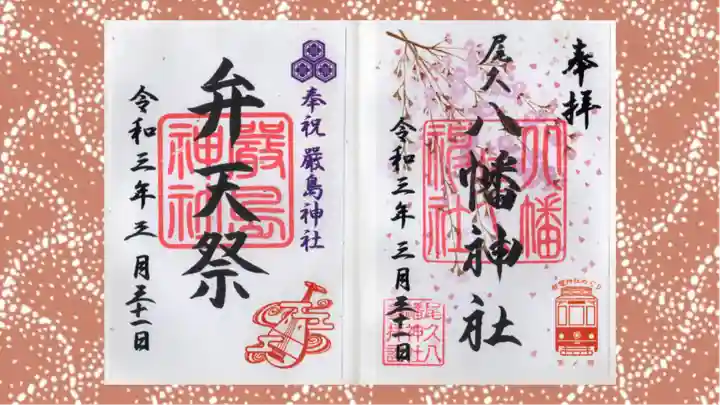 奉拝
尾久八幡神社
令和三年三月三十一日
八幡
神社
尾久八
幡神社
奉祝 厳島神社
弁天祭
令和三年三月三十一日
嚴島
神社